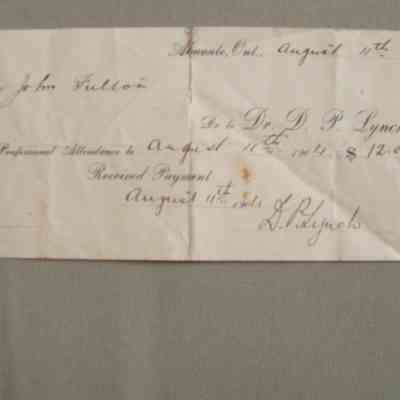 Almonte, Ont. August 11th
John Fulton
Dr to Dr. D. P. Lynch
Professional Attendance to August 11th $ 12.0
Received Payment
August 11th
D. P. Lynch